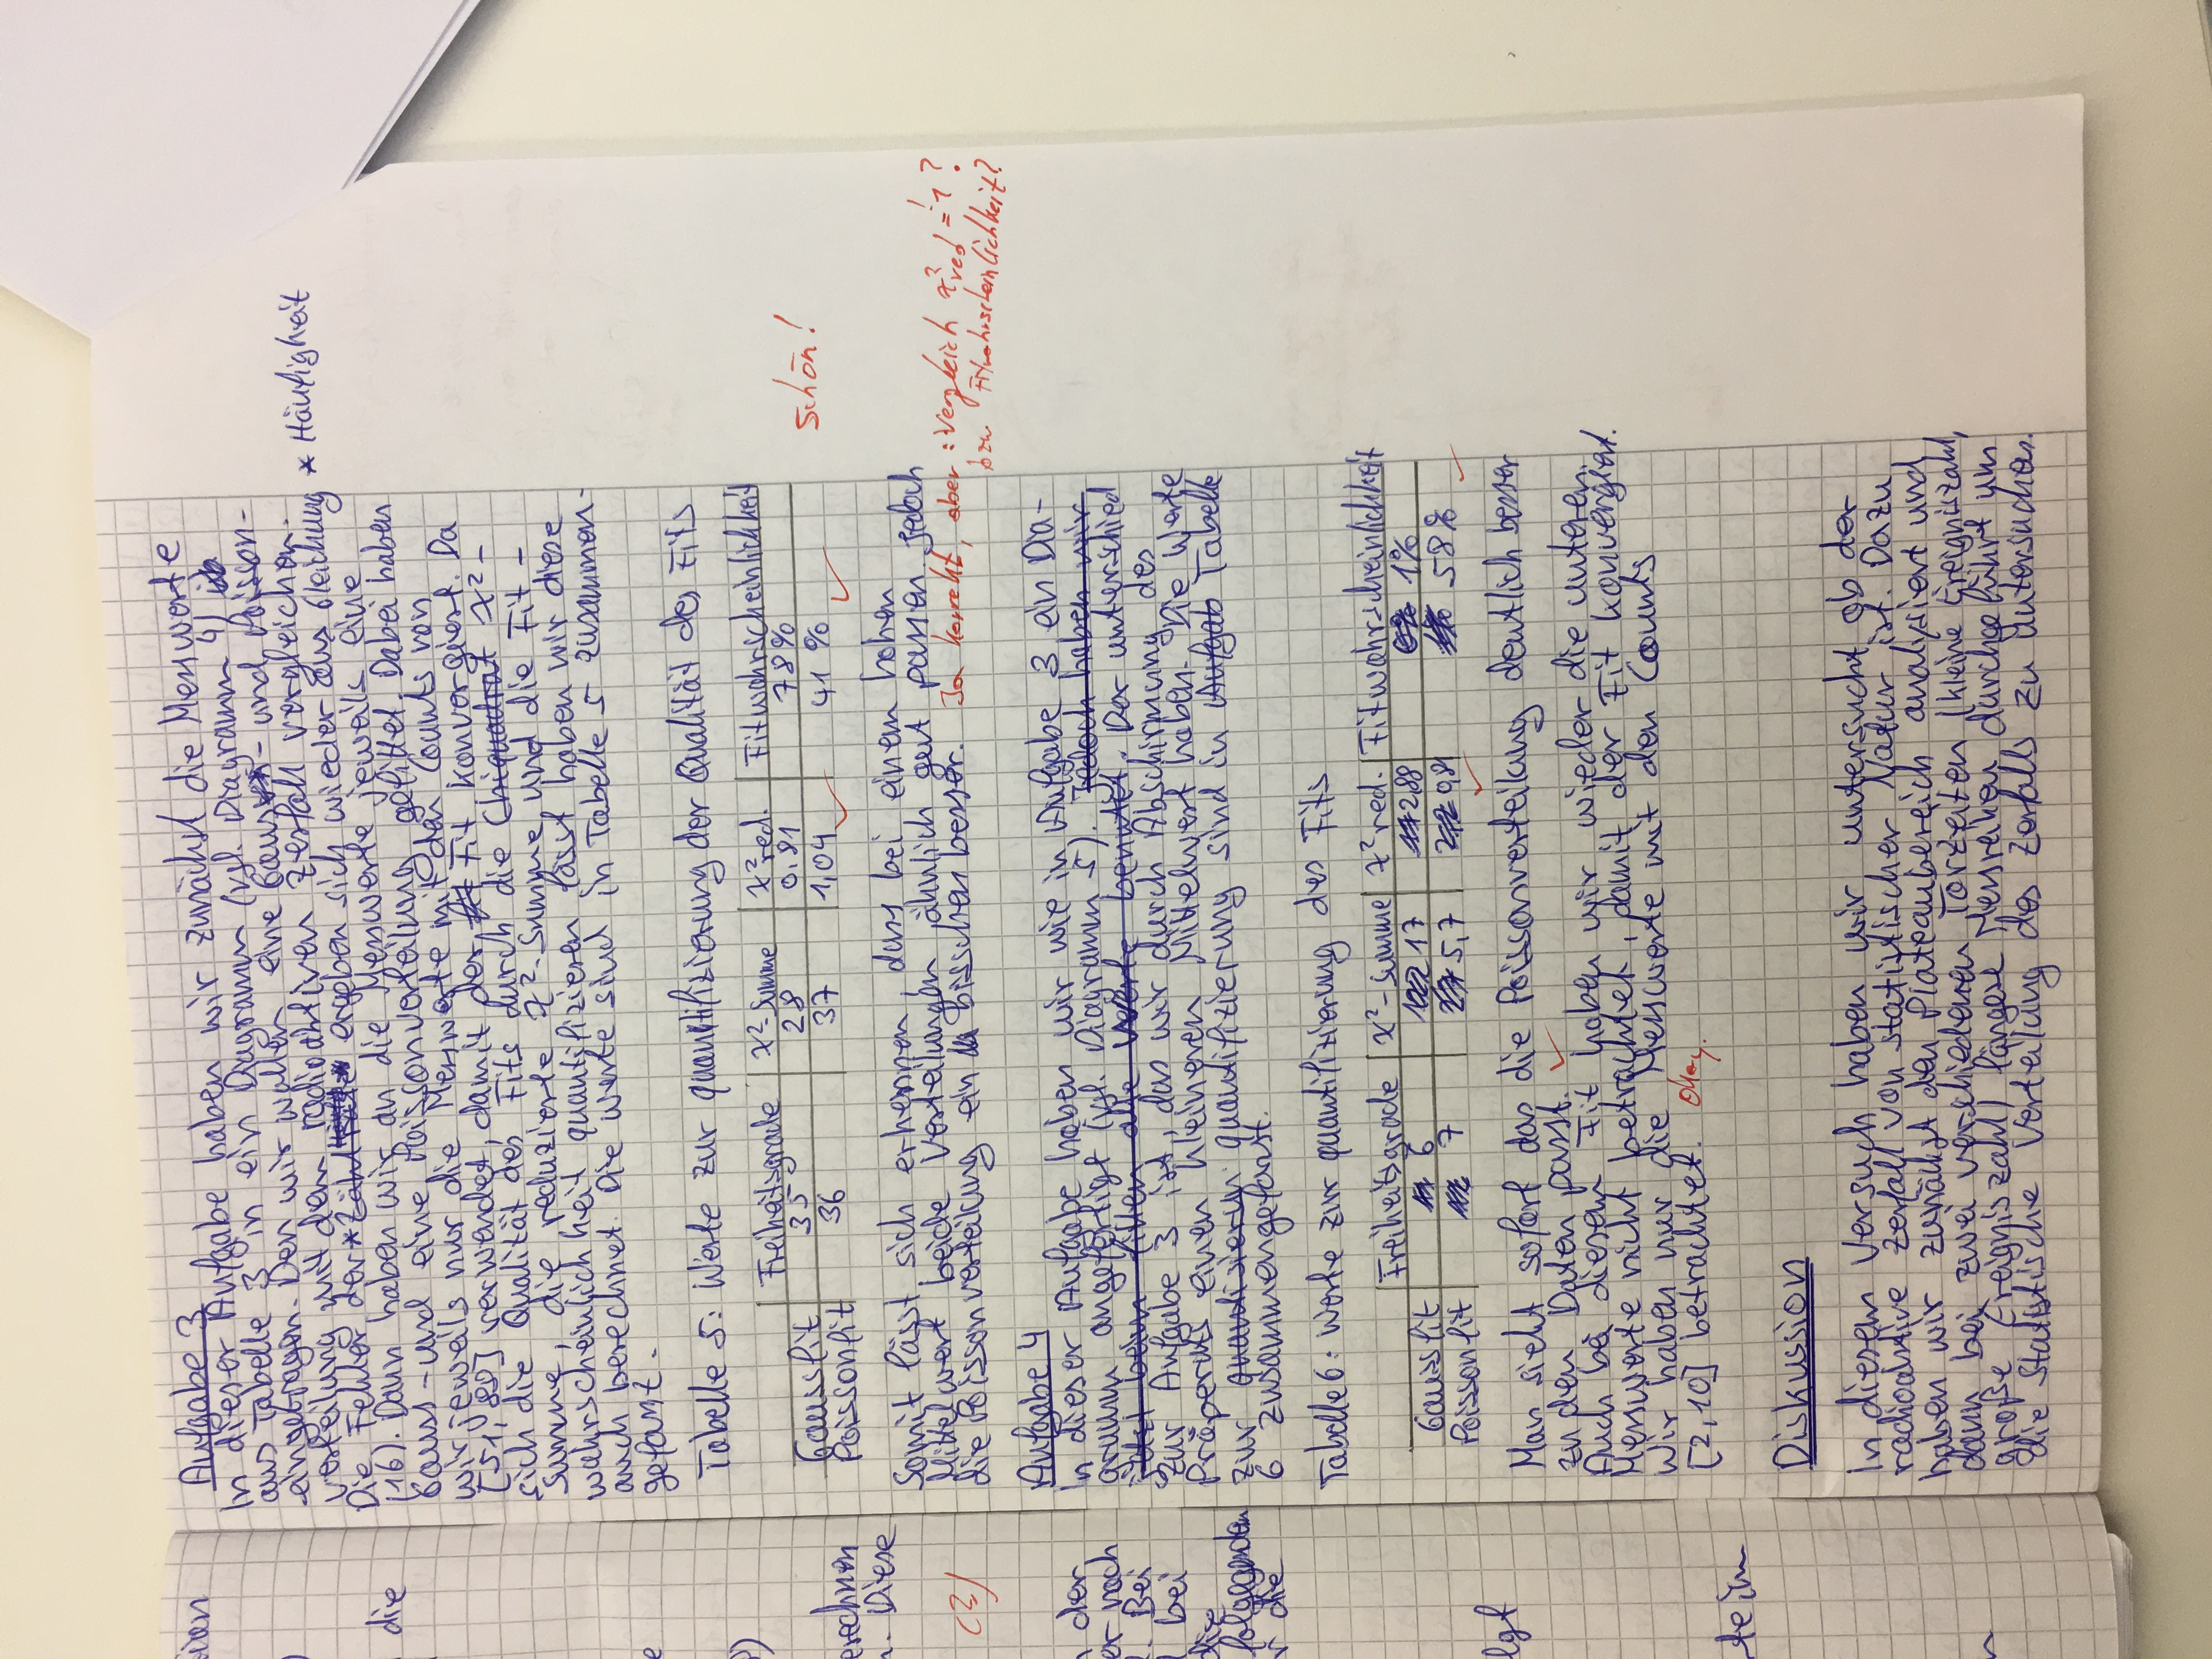 Aufgabe 3
In dieser Aufgabe haben wir zunächst die Messwerte
aus Tabelle 3 in ein Diagramm (vgl. Diagramm 4)
eingetragen. Den wir wollen eine Gauss- und Poisson-
verteilung mit dem radioaktiven Zerfall vergleichen.
Die Fehler der * Zählrate ergeben sich wieder aus Gleichung * Häufigkeit
(16). Dann haben wir an die Messwerte jeweils eine
Gauss- und eine Poissonverteilung gefittet. Dabei haben
wir jeweils nur die Messwerte mit den Counts von
[51, 89] verwendet, damit der Fit konvergiert. Da
sich die Qualität des Fits durch die Chiquadrat χ²-
Summe, die reduzierte χ²-Summe und die Fit-
wahrscheinlichkeit quantifizieren lässt haben wir diese
auch berechnet. Die Werte sind in Tabelle 5 zusammen-
gefasst.
Tabelle 5: Werte zur quantifizierung der Qualität des Fits
Freiheitsgrade χ²-Summe χ² red. Fitwahrscheinlichkeit
Gaussfit 35 28 0,81 78%
Poissonfit 36 37 1,04 41 %
schön!
Somit lässt sich erkennen, dass bei einem hohen
Mittelwert beide Verteilungen ähnlich gut passen jedoch
die Poissonverteilung ein bisschen besser. Ja korrekt, aber: Vergleich χ²red =! 1?
bzw Fitwahrscheinlichkeit?
Aufgabe 4
In dieser Aufgabe haben wir wie in Aufgabe 3 ein Dia-
gramm angefertigt (vgl. Diagramm 5). Jedoch haben wir
jetzt beim fitten alle Werte benutzt. Der unterschied
zur Aufgabe 3 ist, das wir durch Abschirmung des
Präperats einen kleineren Mittelwert haben. Die Werte
zur quantisierun quantifizierung sind in Aufgab Tabelle
6 zusammengefasst.
Tabelle 6: Werte zur quantifizierung des Fits
Freiheitsgrade χ²-Summe χ² red. Fitwahrscheinlichkeit
Gaussfit 6 17 2,88 1%
Poissonfit 7 5,7 0,81 58%
Man sieht sofort das die Poissonverteilung deutlich besser
zu den Daten passt.
Auch bei diesem Fit haben wir wieder die unteren
Messwerte nicht betrachtet, damit der Fit konvergiert.
Wir haben nur die Messwerte mit den Counts
[2,10] betrachtet. Okay.
Diskussion
In diesem Versuch haben wir untersucht ob der
radioaktive Zerfall von statistischer Natur ist. Dazu
haben wir zunächst den Plateaubereich analysiert und
dann bei zwei verschiedenen Torzeiten (kleine Ereigniszahl,
große Ereigniszahl) längere Messreihen durchgeführt um
die statistische Verteilung des Zerfalls zu untersuchen.
die
erechnen
n. Diese
(2)
der
er noch
. Bei
bei
die
folgegenden
r die
lgt